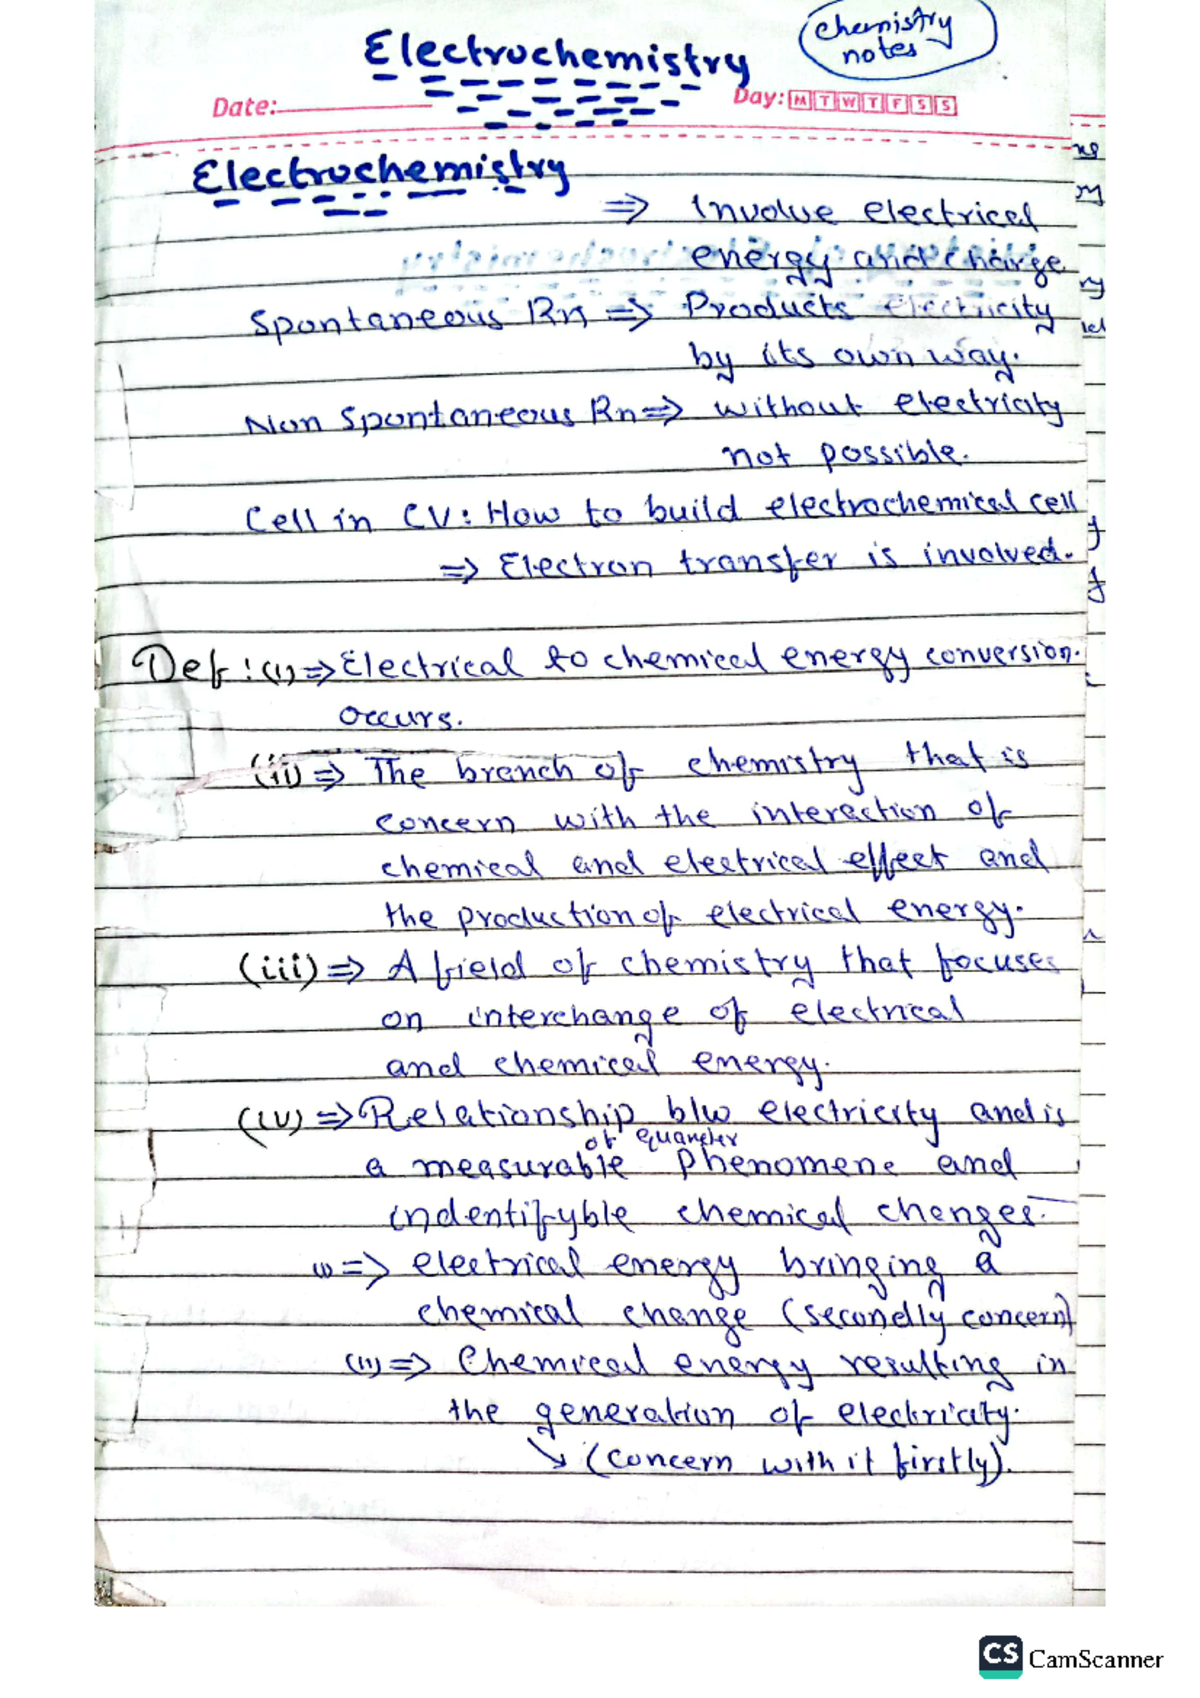 chemistry
notes
Electrochemistry
Date:
Day: M T W T F S S
Electrochemistry
⇒ Involve electrical
energy and charge
Spontaneous Rn ⇒ Products electricity
by its own way.
Non Spontaneous Rn ⇒ without electricity
not possible.
Cell in CV: How to build electrochemical cell
⇒ Electron transfer is involved.
Def: (i) ⇒ Electrical to chemical energy conversion.
occurs.
(ii) ⇒ The branch of chemistry that is
concern with the interaction of
chemical and electrical effect and
the production of electrical energy.
(iii) ⇒ A field of chemistry that focuses
on interchange of electrical
and chemical energy.
(iv) ⇒ Relationship b/w electricity and is
of
a measurable phenomene and
indentifyble chemical changes.
(i) ⇒ electrical energy bringing a
chemical change (secondly concern)
(ii) ⇒ Chemical energy resulting in
the generation of electricity.
↘ (concern with it firstly).
CS CamScanner